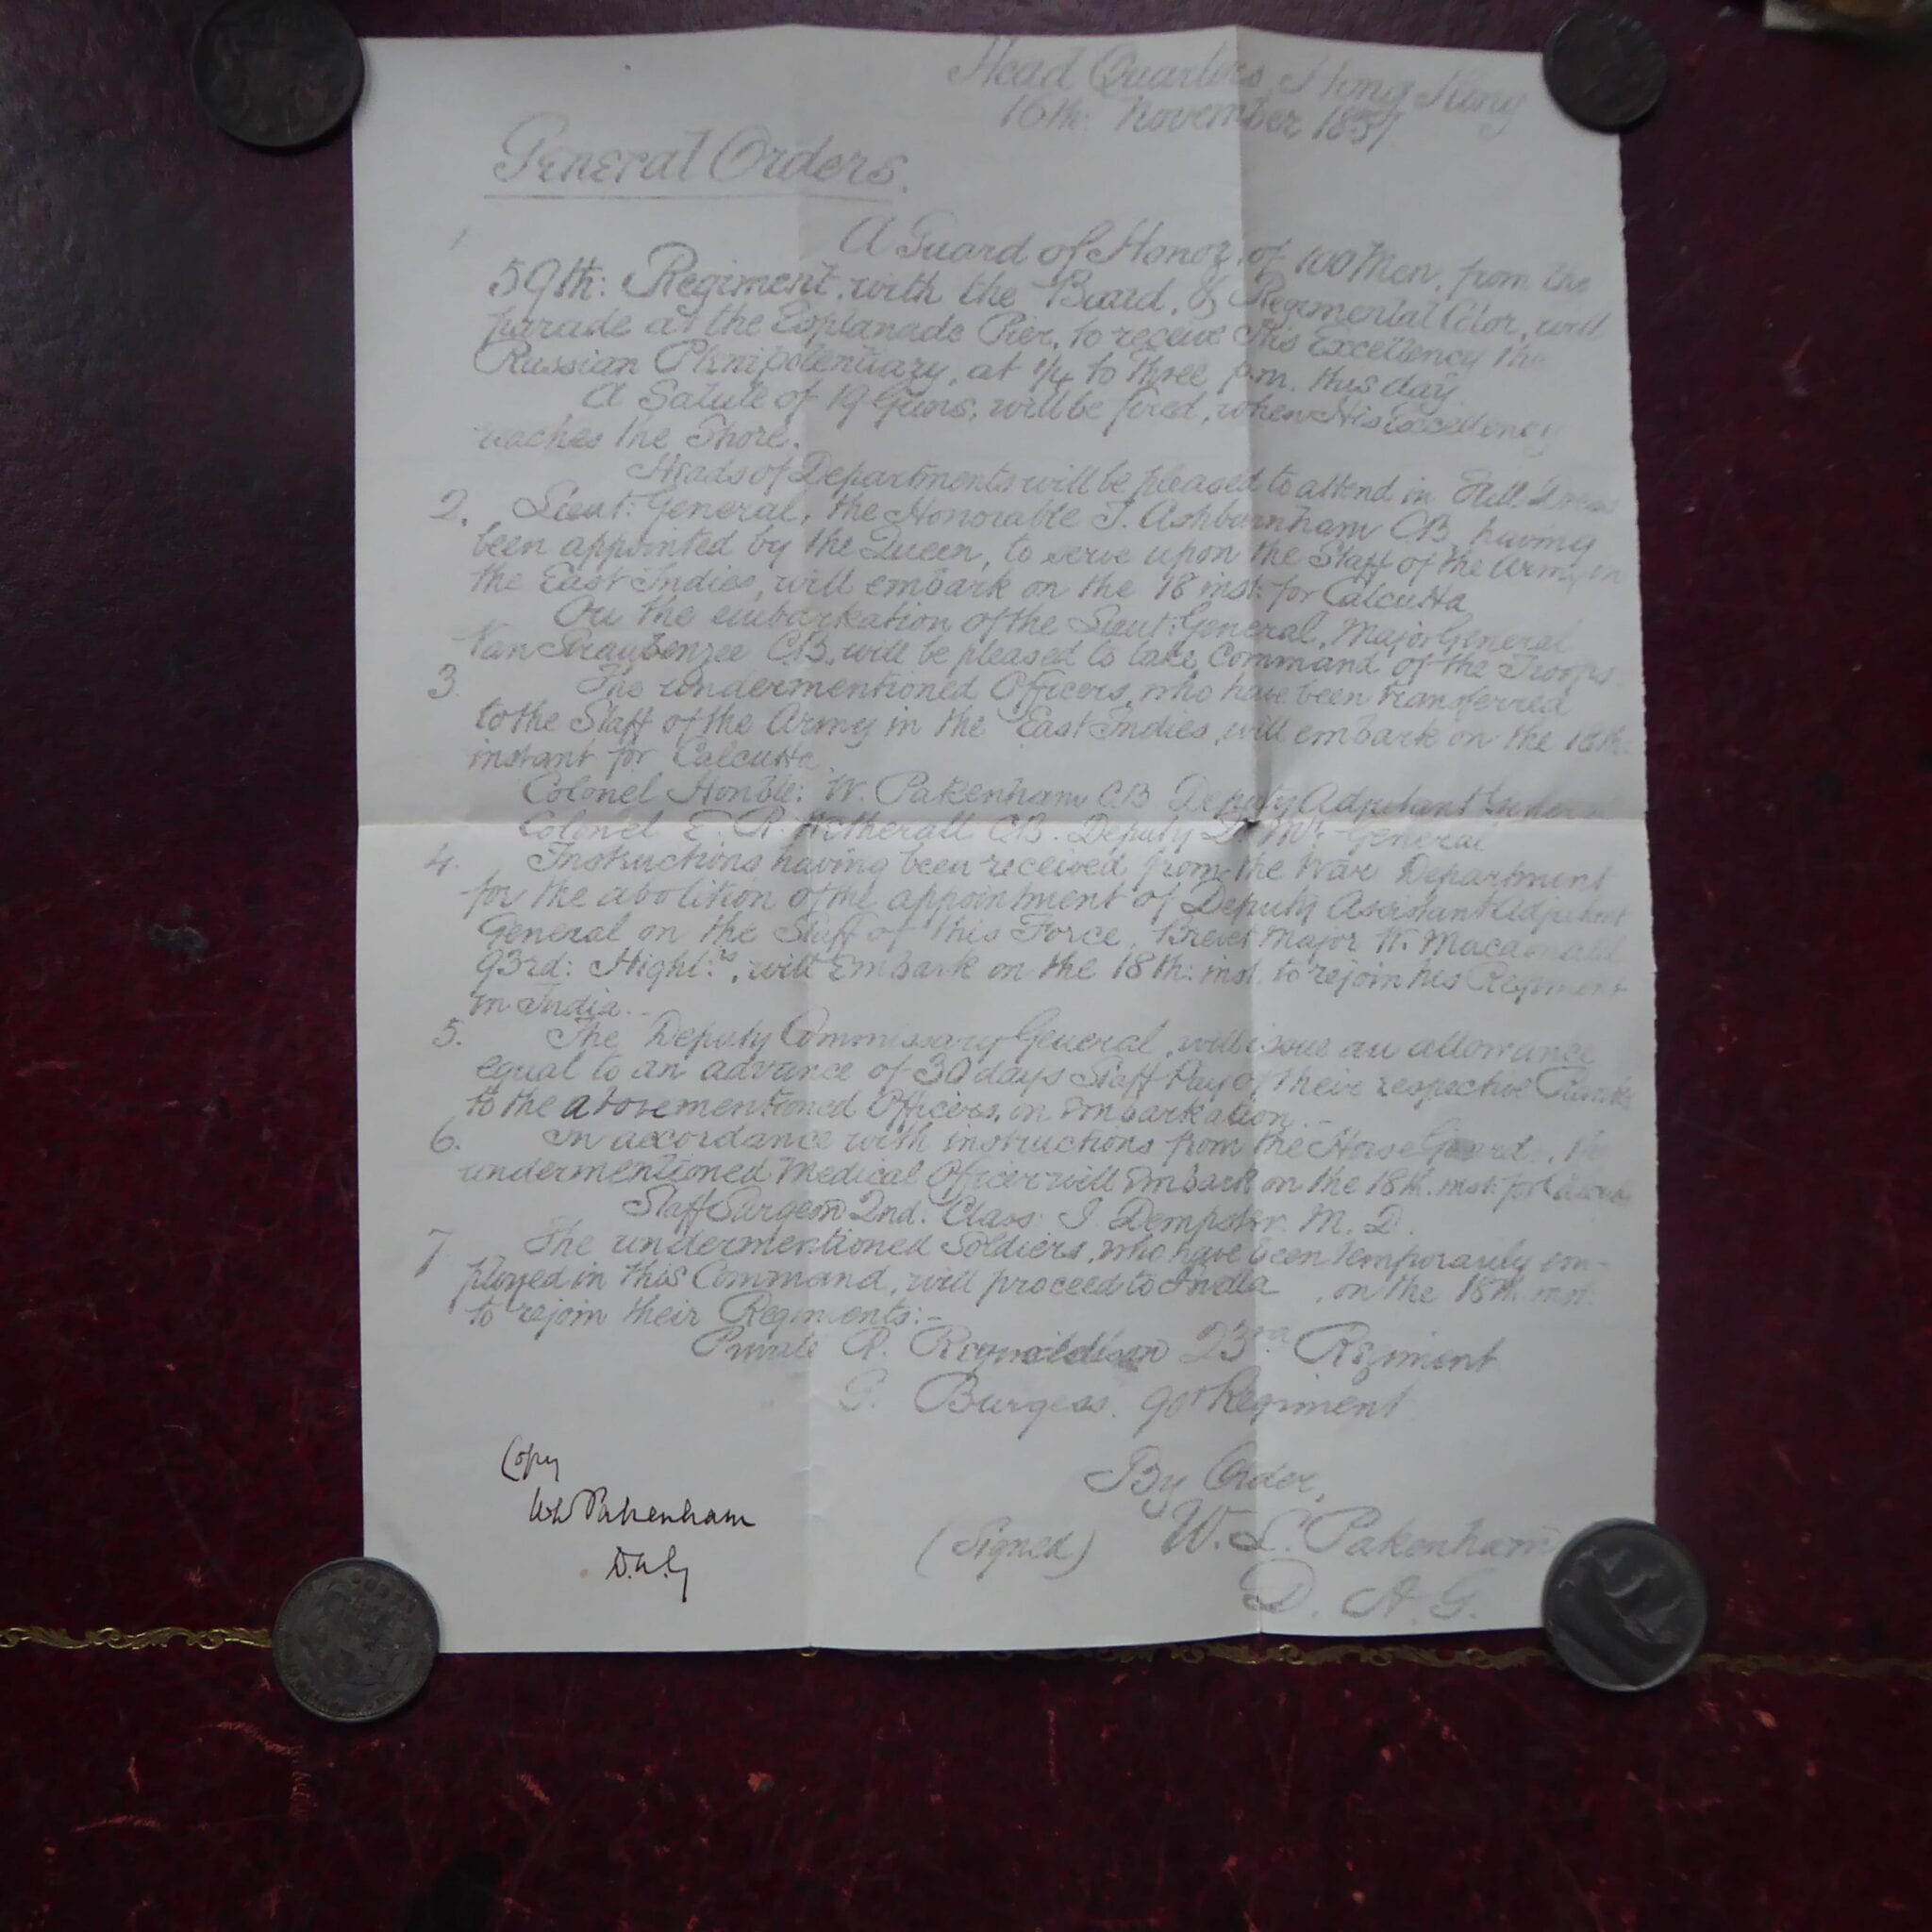 Head Quarters Hong Kong
16th November 1857
General Orders.
1
A Guard of Honor, of 100 Men, from the
59th: Regiment, with the Band, & Regimental Color, will
parade at the Esplanade Pier, to receive His Excellency the
Russian Plenipotentiary, at 1/4 to three p.m. this day.
A Salute of 19 Guns, will be fired, when His Excellency
reaches the Shore.
Heads of Departments will be pleased to attend in Full Dress
2. Lieut: General, the Honorable T. Ashburnham CB, having
been appointed by the Queen, to serve upon the Staff of the Army in
the East Indies, will embark on the 18 inst: for Calcutta
On the embarkation of the Lieut: General, Major General
Van Straubenzee CB, will be pleased to take command of the Troops.
3. The undermentioned Officers, who have been transferred
to the Staff of the Army in the East Indies, will embark on the 18th:
instant for Calcutta
Colonel Honble: W. Pakenham C.B Deputy Adjutant General
Colonel E. R. Wetherall CB. Deputy Qr Mr General
4. Instructions having been received from the War Department
for the abolition of the appointment of Deputy Assistant Adjutant
General on the Staff of this Force, Brevet Major W. Macdonald
93rd: Highl:rs, will Embark on the 18th: inst. to rejoin his Regiment
in India. -
5. The Deputy Commissary General, will issue an allowance
equal to an advance of 30 days Staff Pay of their respective Ranks
to the abovementioned Officers, on Embarkation. -
6. In accordance with instructions from the Horse Guards, the
undermentioned Medical Officer will Embark on the 18th. inst: for
Staff Surgeon 2nd. Class J. Dempster. M. D.
7 The undermentioned Soldiers, who have been temporarily em-
ployed in this Command, will proceed to India, on the 18th inst.
to rejoin their Regiments: -
Private R. 23rd Regiment
G. Burgess. 90th Regiment
By Order,
(Signed) W. L. Pakenham
D. A. G.
Copy
W L Pakenham
D.A.G